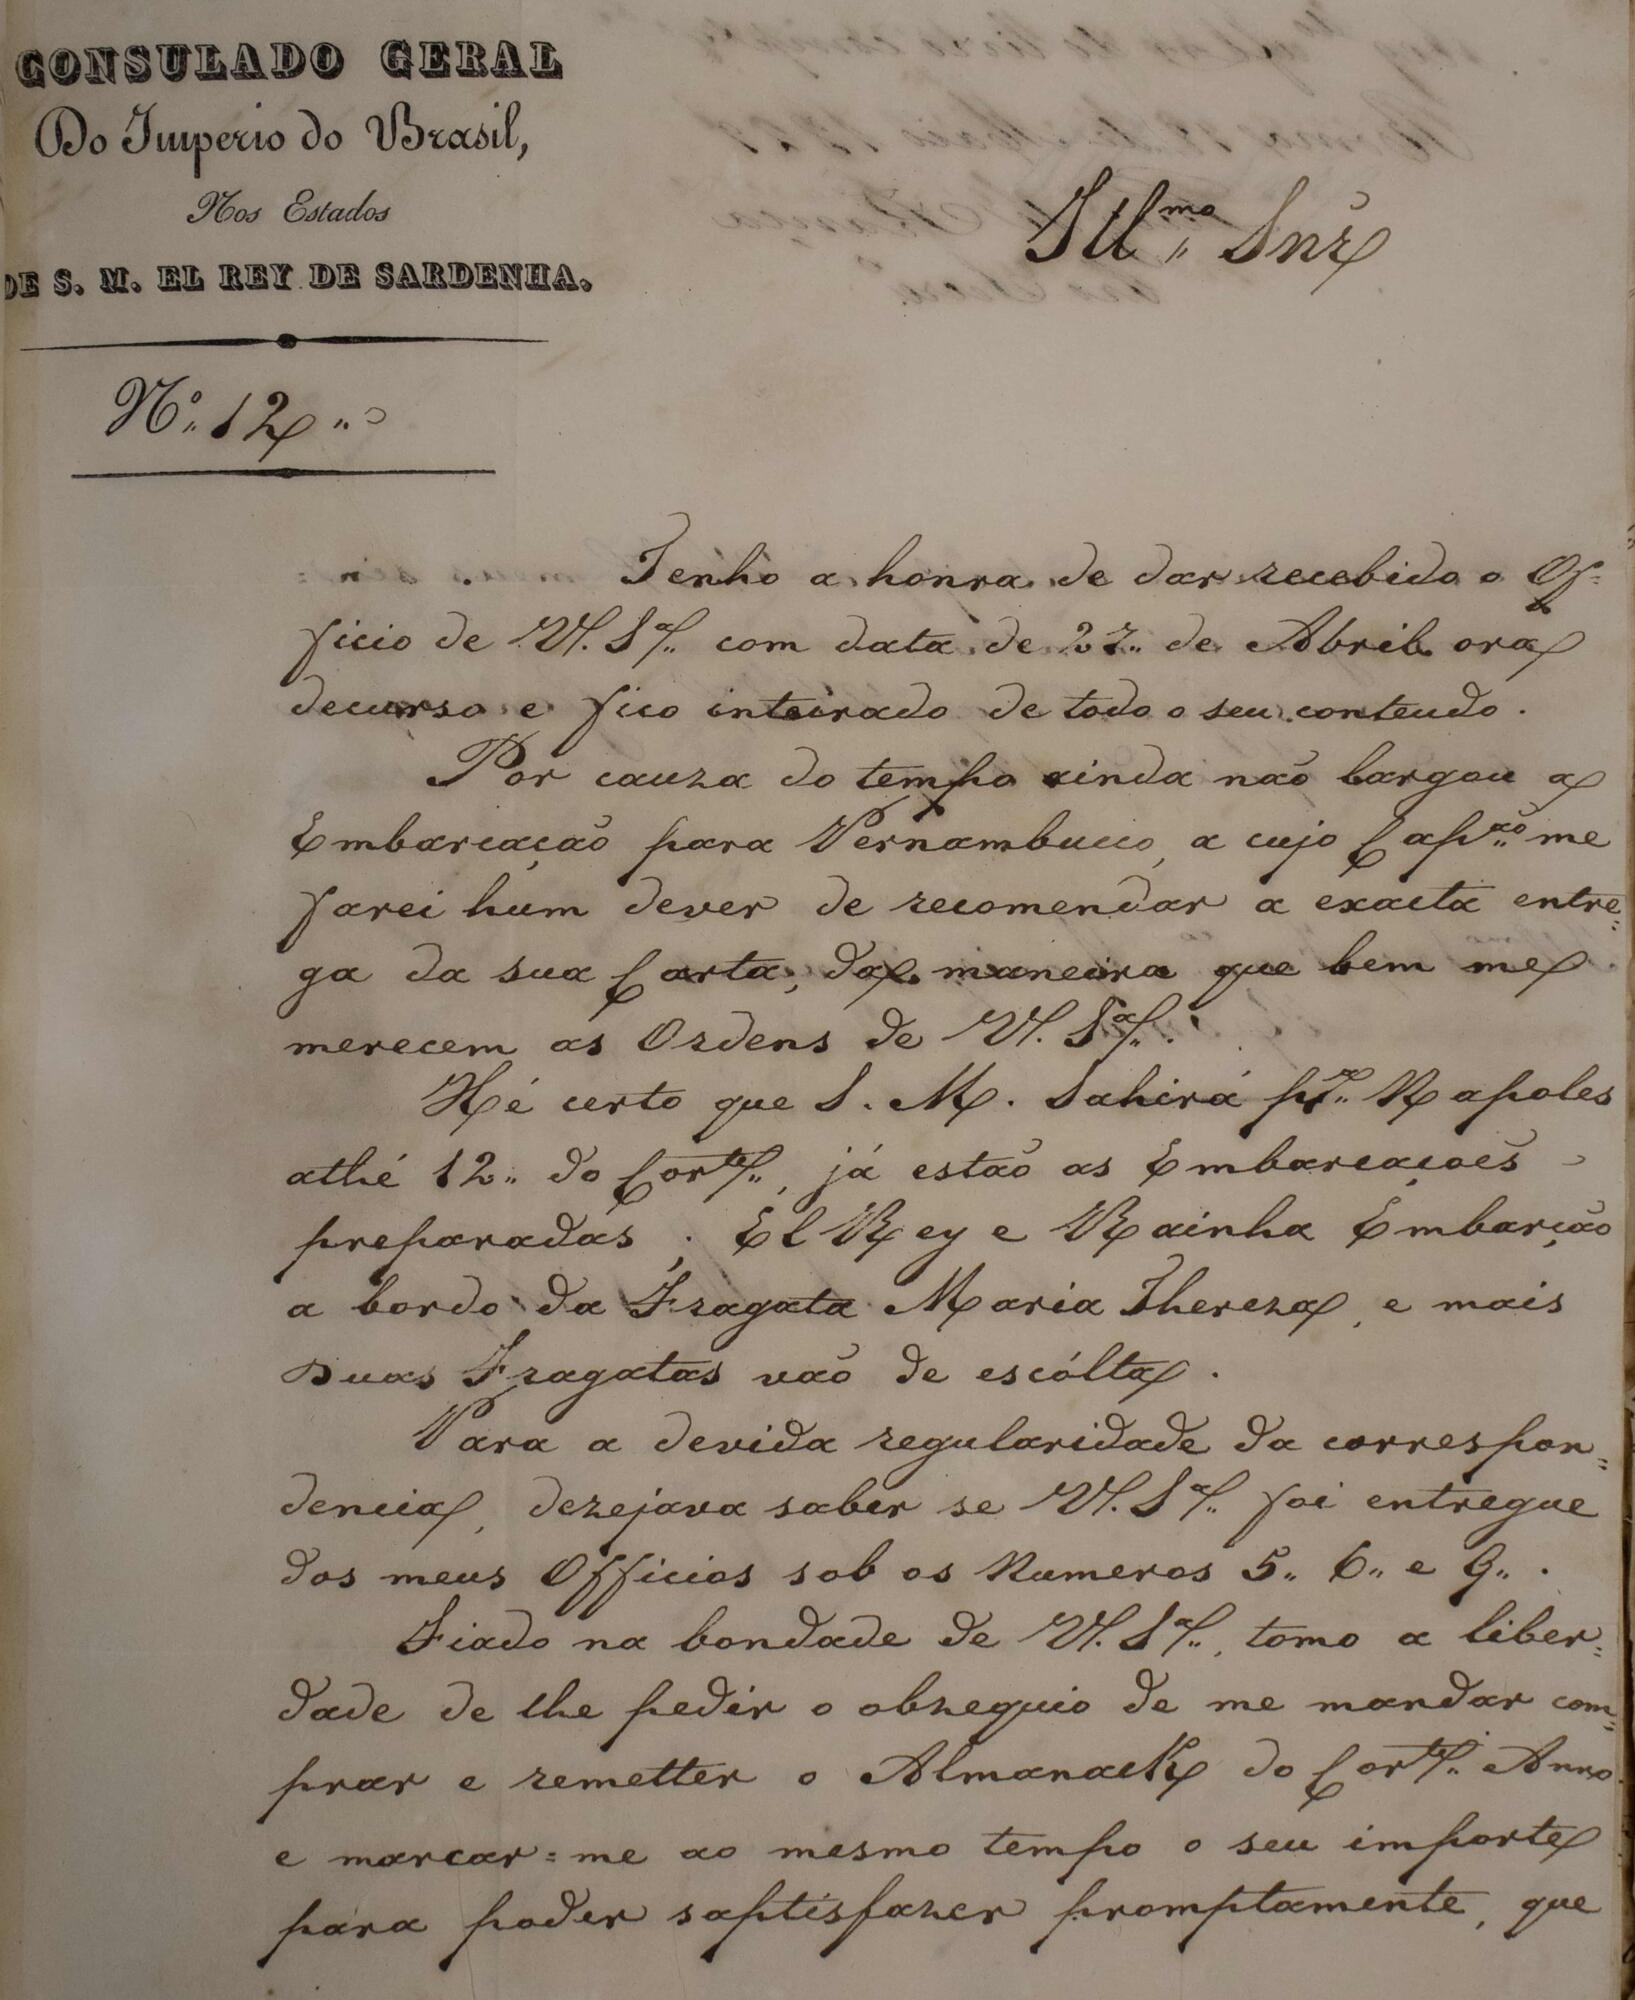 CONSULADO GERAL
Do Imperio do Brasil,
Nos Estados
DE S. M. EL REY DE SARDENHA.
Nº 12
Illmo Snr
Tenho a honra de dar recebido o Of=
ficio de V. Sa. com data de 27 de Abril ora
decurso e fico inteirado de todo o seu conteudo.
Por cauza do tempo ainda não largou a
Embarcação para Pernambuco, a cujo Capão me
farei hum dever de recomendar a exacta entre=
ga da sua Carta, da maneira que bem me
merecem as Ordens de V. Sa.
Hé certo que S. M. Sahirá pa. Napoles
athé 12 do Corte., já estão as Embarcações
preparadas; El Rey e Rainha Embarcão
a bordo da Fragata Maria Thereza, e mais
duas Fragatas vão de escólta.
Para a devida regularidade da correspon=
dencia, dezejava saber se V. Sa. foi entregue
dos meus Officios sob os Numeros 5. 6. e 9.
Fiado na bondade de V. Sa., tomo a liber=
dade de lhe pedir o obzequio de me mandar com=
prar e remetter o Almanack do Corte. Anno
e marcar=me ao mesmo tempo o seu importe
para poder saptisfazer promptamente, que